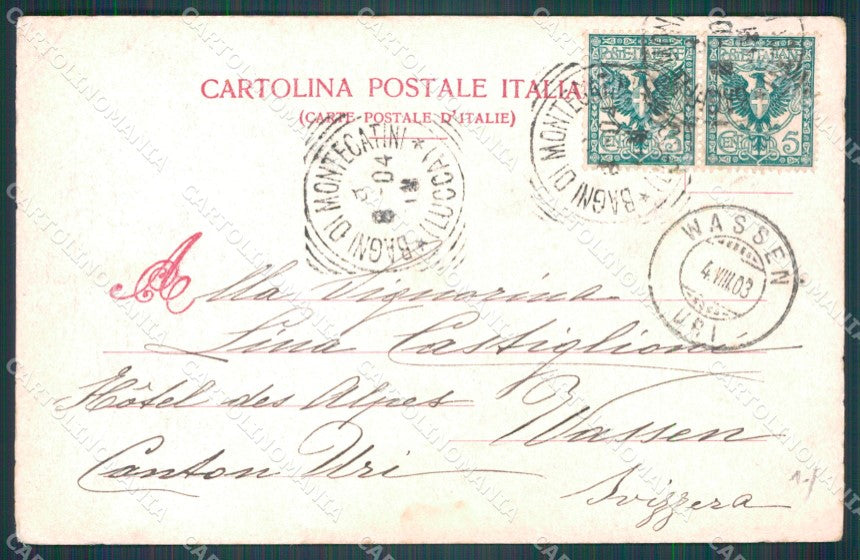 CARTOLINA POSTALE ITALIANA
(CARTE POSTALE D'ITALIE)
BAGNI DI MONTECATINI * (LUCCA) *
POSTE ITALIANE
CENT 5
5
BAGNI DI MONTECATINI * (LUCCA) *
WASSEN
4.VIII.03
URI
Alla Signorina
Lina Castiglioni
Hôtel des Alpes Wassen
Canton Uri
Svizzera
CARTOLINOMANIA